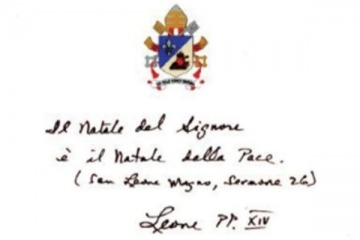 Il Natale del Signore
è il Natale della Pace.
(San Leone Magno, Sermone 26)
Leone PP. XIV